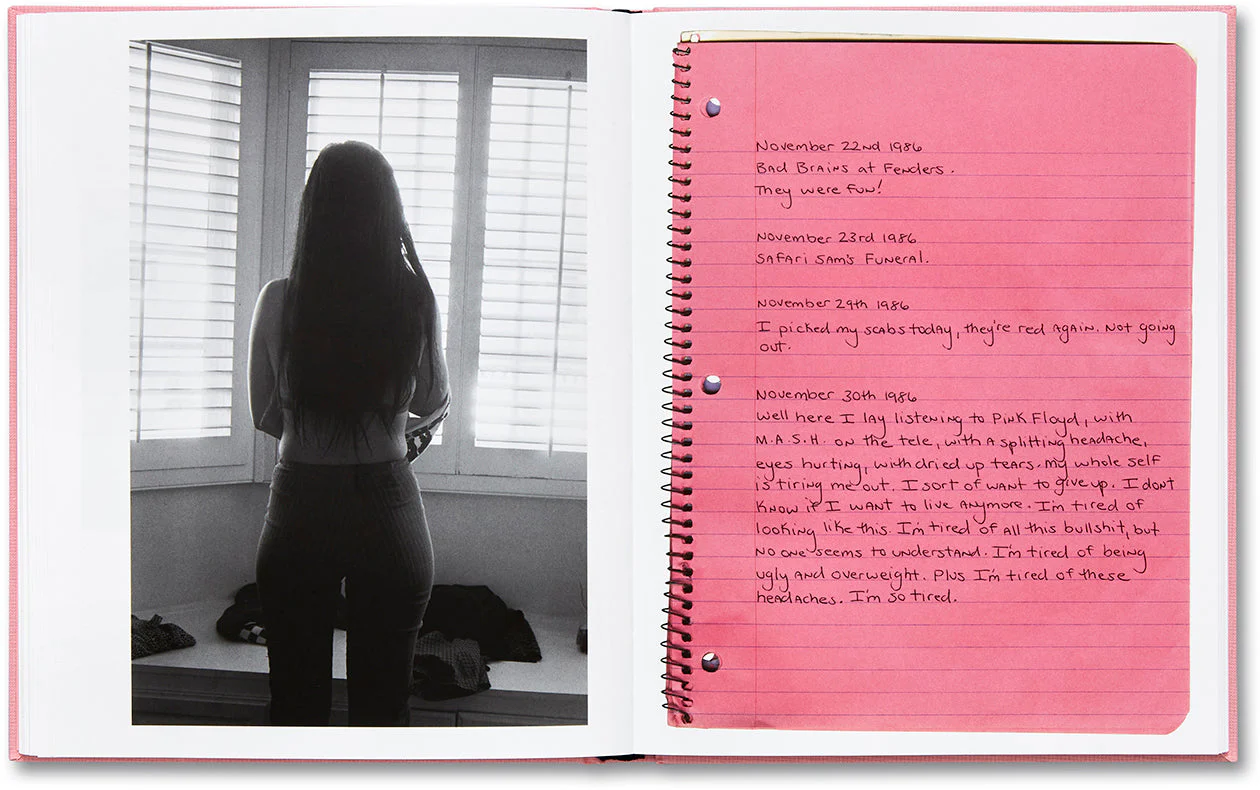 November 22nd 1986
Bad Brains at Fenders.
They were fun!
November 23rd 1986
Safari Sam's Funeral.
November 29th 1986
I picked my scabs today, they're red again. Not going
out.
November 30th 1986
Well here I lay listening to Pink Floyd, with
M.A.S.H. on the tele, with a splitting headache,
eyes hurting, with dried up tears. My whole self
is tiring me out. I sort of want to give up. I dont
know if I want to live anymore. I'm tired of
looking like this. I'm tired of all this bullshit, but
no one seems to understand. I'm tired of being
ugly and overweight. Plus I'm tired of these
headaches. I'm so tired.